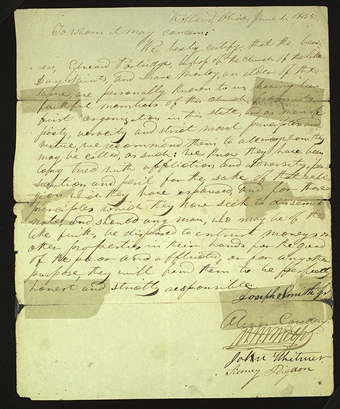 Kirtland, Ohio, June 1, 1835.
To whom it may concern:
We hereby certify, that the bear-
ers, Edward Partridge, bishop of the church of the Latter
Day Saints, and Isaac Morley, an elder of the
same, are personally known to us, having been
faithful members of this church, its
first organization in this state, and as men of
piety, veracity and strict moral principle and
we recommend them to all among whom they
may be called, as such: We know they have been
long tried with affliction and adversity,
and peril for the sake of that
gion which they have espoused, and for those
principles which they have seek to dissemi-
nate, and should any man, who may be of the
like faith, be disposed to entrust moneys or
other properties in their hands for the good
of the poor and afflicted, or for any other
purpose, they will find them to be perfectly
honest and strictly responsible.
Joseph Smith Jr
Oliver Cowdery
John Whitmer
Sidney Rigdon